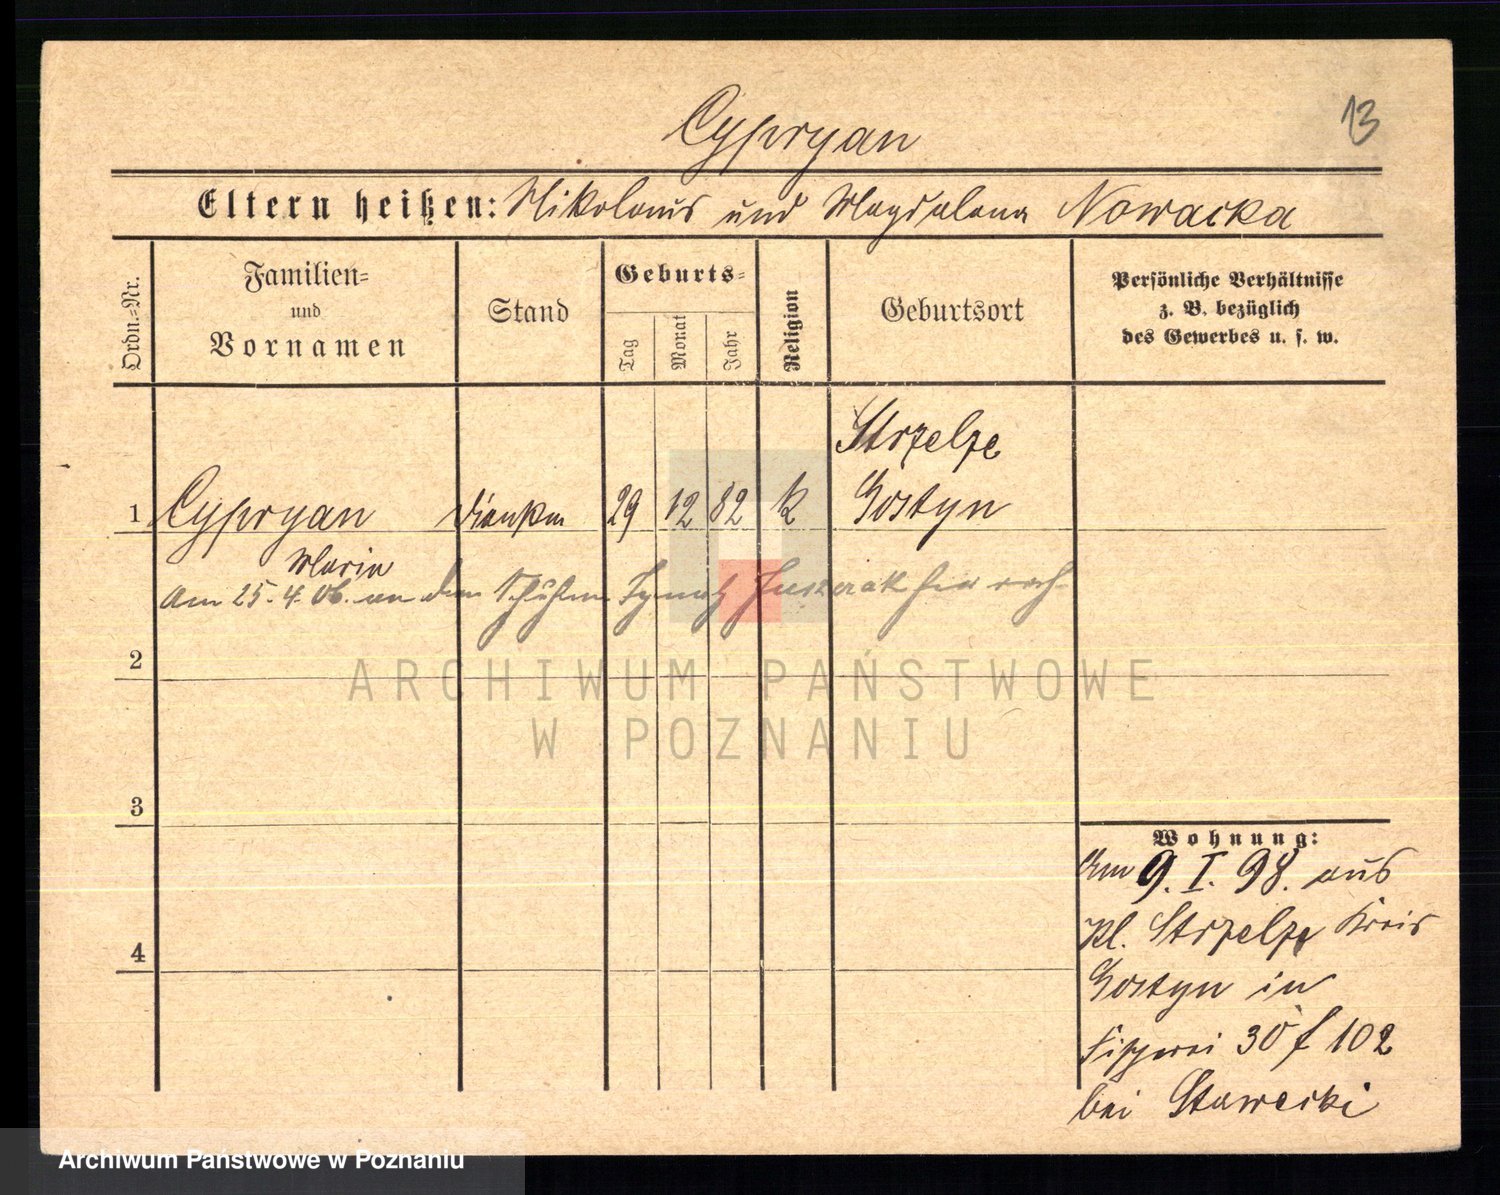 13
Cypryan
Eltern heißen: Nikolaus und Magdalena Nowacka
Ordn.-Nr.
Familien-
und
Vornamen
Stand
Geburts-
Tag
Monat
Jahr
Religion
Geburtsort
Persönliche Verhältnisse
z. B. bezüglich
des Gewerbes u. s. w.
Strzelze
1 Cypryan 29 12 82 k Gostyn
Marie
Am 25.4.06. an den Ignatz hier
2
ARCHIWUM PAŃSTWOWE
W POZNANIU
3
Wohnung:
Am 9. I. 98. aus
Kl. Strzelze Kreis
4
Gostyn in
Fischerei 30 f 102
bei Stawecki
Archiwum Państwowe w Poznaniu